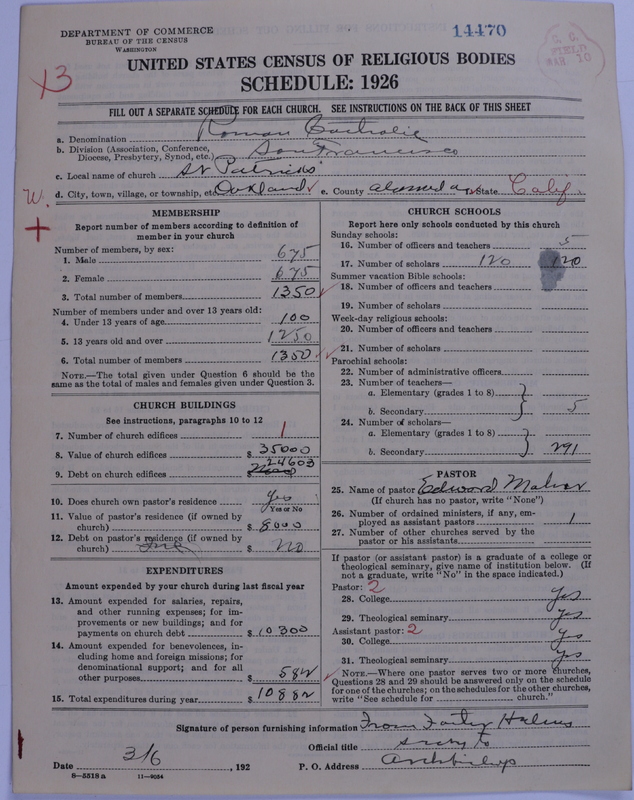 DEPARTMENT OF COMMERCE
BUREAU OF THE CENSUS
WASHINGTON
14470
FIELD
MAR 10
X3
UNITED STATES CENSUS OF RELIGIOUS BODIES
SCHEDULE: 1926
FILL OUT A SEPARATE SCHEDULE FOR EACH CHURCH. SEE INSTRUCTIONS ON THE BACK OF THIS SHEET
a. Denomination Roman Catholic
b. Division (Association, Conference, Diocese, Presbytery, Synod, etc.) San Francisco
c. Local name of church St Patricks
d. City, town, village, or township, etc. Oakland e. County Alameda State Calif
W.
+
MEMBERSHIP
Report number of members according to definition of
member in your church
Number of members, by sex:
1. Male 675
2. Female 675
3. Total number of members 1350
Number of members under and over 13 years old:
4. Under 13 years of age 100
5. 13 years old and over 1250
6. Total number of members 1350
NOTE.—The total given under Question 6 should be
same as the total of males and females given under Question 3.
CHURCH BUILDINGS
See instructions, paragraphs 10 to 12
7. Number of church edifices 1
8. Value of church edifices $ 35000
9. Debt on church edifices $ 24603
10. Does church own pastor's residence Yes
Yes or No
11. Value of pastor's residence (if owned by
church) $ 8000
12. Debt on pastor's residence (if owned by
church) $ No
EXPENDITURES
Amount expended by your church during last fiscal year
13. Amount expended for salaries, repairs,
and other running expenses; for im-
provements or new buildings; and for
payments on church debt $ 10300
14. Amount expended for benevolences, in-
cluding home and foreign missions; for
denominational support; and for all
other purposes $ 582
15. Total expenditures during year $ 10882
CHURCH SCHOOLS
Report here only schools conducted by this church
Sunday schools:
16. Number of officers and teachers 5
17. Number of scholars 120 120
Summer vacation Bible schools:
18. Number of officers and teachers
19. Number of scholars
Week-day religious schools:
20. Number of officers and teachers
21. Number of scholars
Parochial schools:
22. Number of administrative officers
23. Number of teachers—
a. Elementary (grades 1 to 8)
b. Secondary 5
24. Number of scholars—
a. Elementary (grades 1 to 8)
b. Secondary 291
PASTOR
25. Name of pastor Edward
(If church has no pastor, write "None")
26. Number of ordained ministers, if any, em-
ployed as assistant pastors 1
27. Number of other churches served by the
pastor or his assistants
If pastor (or assistant pastor) is a graduate of a college or
theological seminary, give name of institution below. (If
not a graduate, write "No" in the space indicated.)
Pastor: 2
28. College Yes
29. Theological seminary Yes
Assistant pastor: 2
30. College Yes
31. Theological seminary Yes
NOTE.—Where one pastor serves two or more churches,
Questions 28 and 29 should be answered only on the schedule
for one of the churches; on the schedules for the other churches,
write "See schedule for church."
Signature of person furnishing information
Official title Secty to
Date 3/6, 192 P. O. Address Archbishop
8—5518 a 11—9054